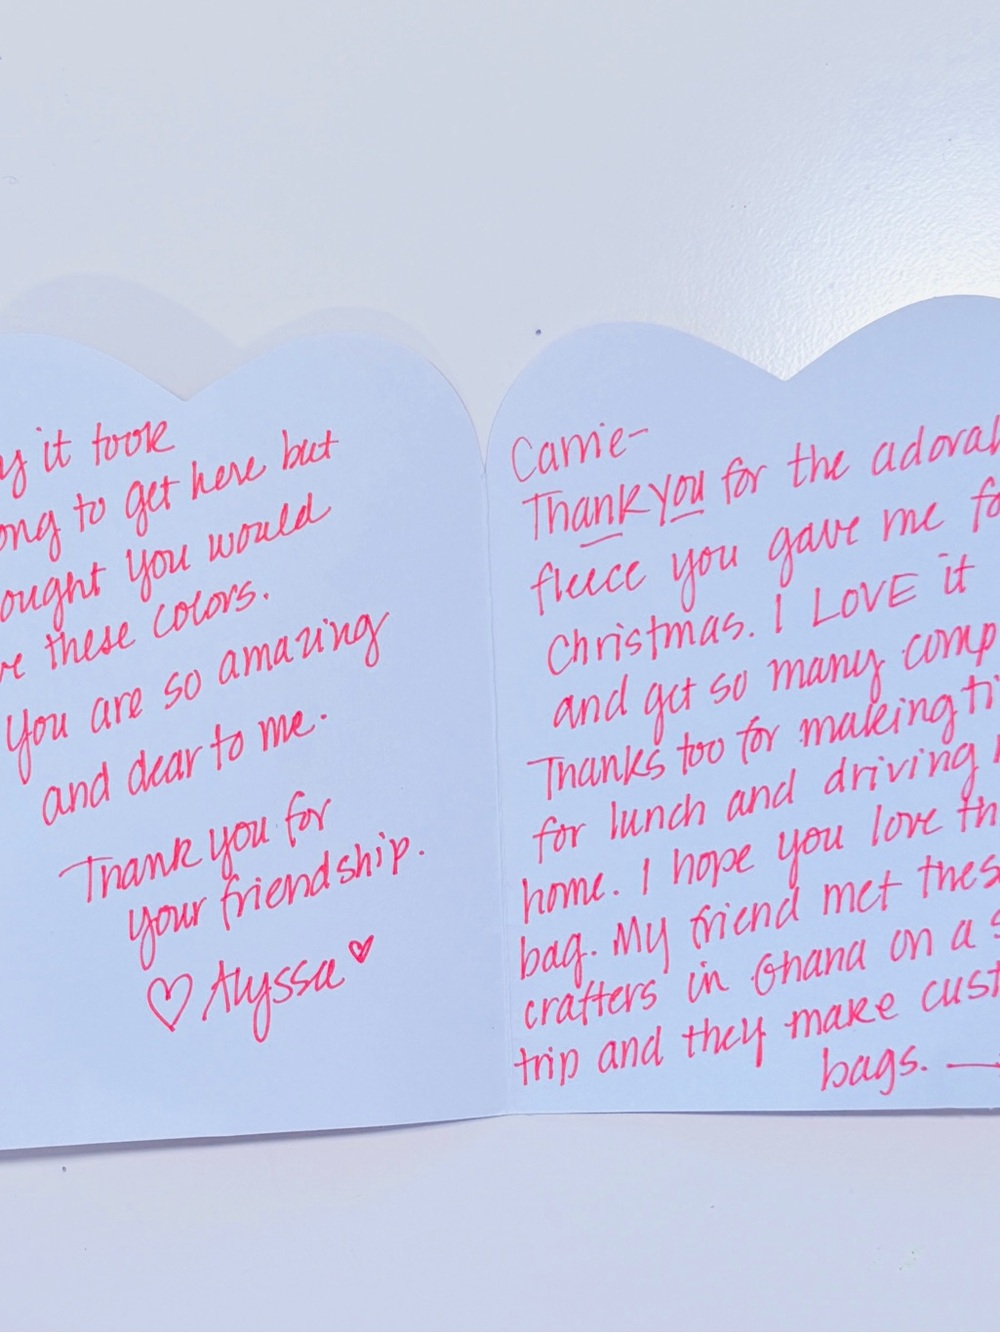 y it took
ong to get here but
ought you would
ve these colors.
You are so amazing
and dear to me.
Thank you for
your friendship.
♡ Alyssa ♡
Carrie-
Thank you for the adorab
fleece you gave me fo
Christmas. I LOVE it
and get so many comp
Thanks too for making ti
for lunch and driving
home. I hope you love th
bag. My friend met thes
crafters in Ghana on a s
trip and they make cust
bags. →